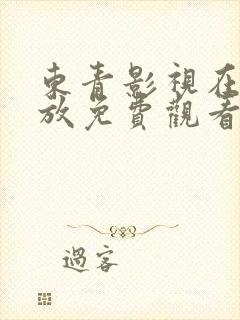 東青影視在
放免費觀看
過客